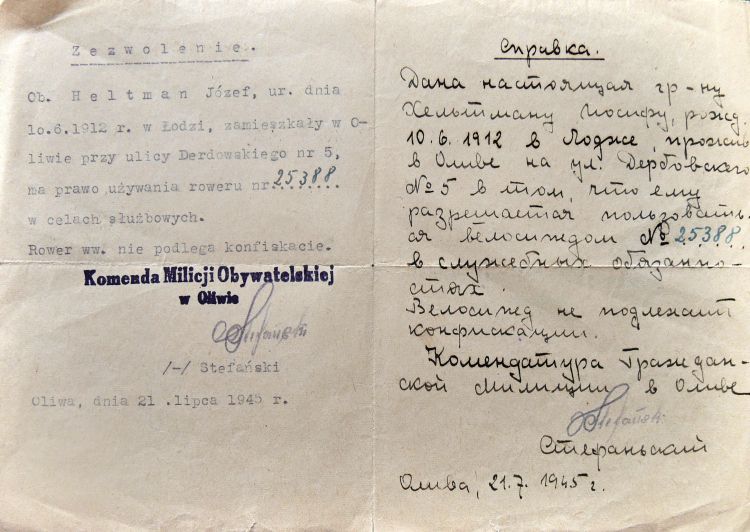 Zezwolenie.
Ob. Heltman Józef, ur. dnia
10.6.1912 r. w Łodzi, zamieszkały w O-
liwie przy ulicy Derdowskiego nr 5,
ma prawo używania roweru nr 25388
w celach służbowych.
Rower ww. nie podlega konfiskacie.
Komenda Milicji Obywatelskiej
w Oliwie
Stefański
/-/ Stefański
Oliwa, dnia 21 .lipca 1945 r.
Справка.
Дана настоящая гр-ну
Хельтману Иосифу, рожд.
10.6.1912 в Лодже, прожив
в Оливе на ул. Дербовского
№5 в том, что ему
разрешается пользовать-
ся велосипедом № 25388
в служебных обязанно-
стях.
Велосипед не подлежит
конфискации.
Комендатура Граждан-
ской Милиции в Оливе
Stefański
Стефаньский
Олива, 21.7. 1945 г.